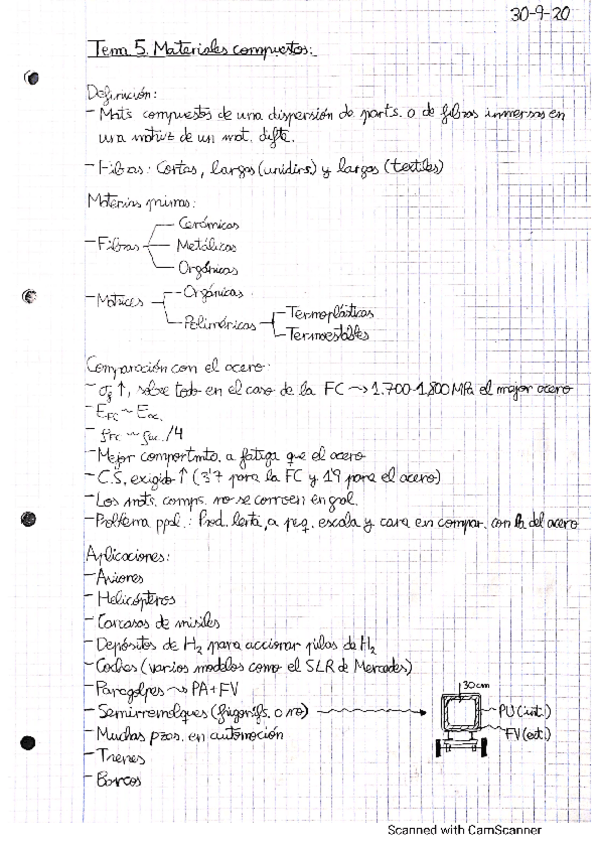 30-9-20
Tema 5. Materiales compuestos:
Definición:
- Mats compuestos de una dispersión de parts. o de fibras inmersas en
una matriz de un mat. difte.
- Fibras: Cortas, largas (unidirs) y largas (textiles)
Materias primas:
- Fibras
- Cerámicas
- Metálicas
- Orgánicas
- Matrices
- Orgánicas
- Poliméricas
- Termoplásticas
- Termoestables
Comparación con el acero:
- σf ↑, sobre todo en el caso de la FC → 1.700-1.800 MPa el mejor acero
- EFC ~ Eac.
- ρFC ~ ρac./4
- Mejor comportmto. a fatiga que el acero
- C.S. exigido ↑ (3'7 para la FC y 1'9 para el acero)
- Los mats. comps. no se corroen en gral.
- Problema ppl.: Prod. lenta, a peq. escala y cara en compar. con la del acero
Aplicaciones:
- Aviones
- Helicópteros
- Carcasas de misiles
- Depósitos de H2 para accionar pilas de H2
- Coches (varios modelos como el SLR de Mercedes)
- Paragolpes ~> PA+FV
- Semirremolques (frigorífs. o no)
30 cm
PU (int.)
FV (ext.)
- Muchas pzas. en automoción
- Trenes
- Barcos
Scanned with CamScanner